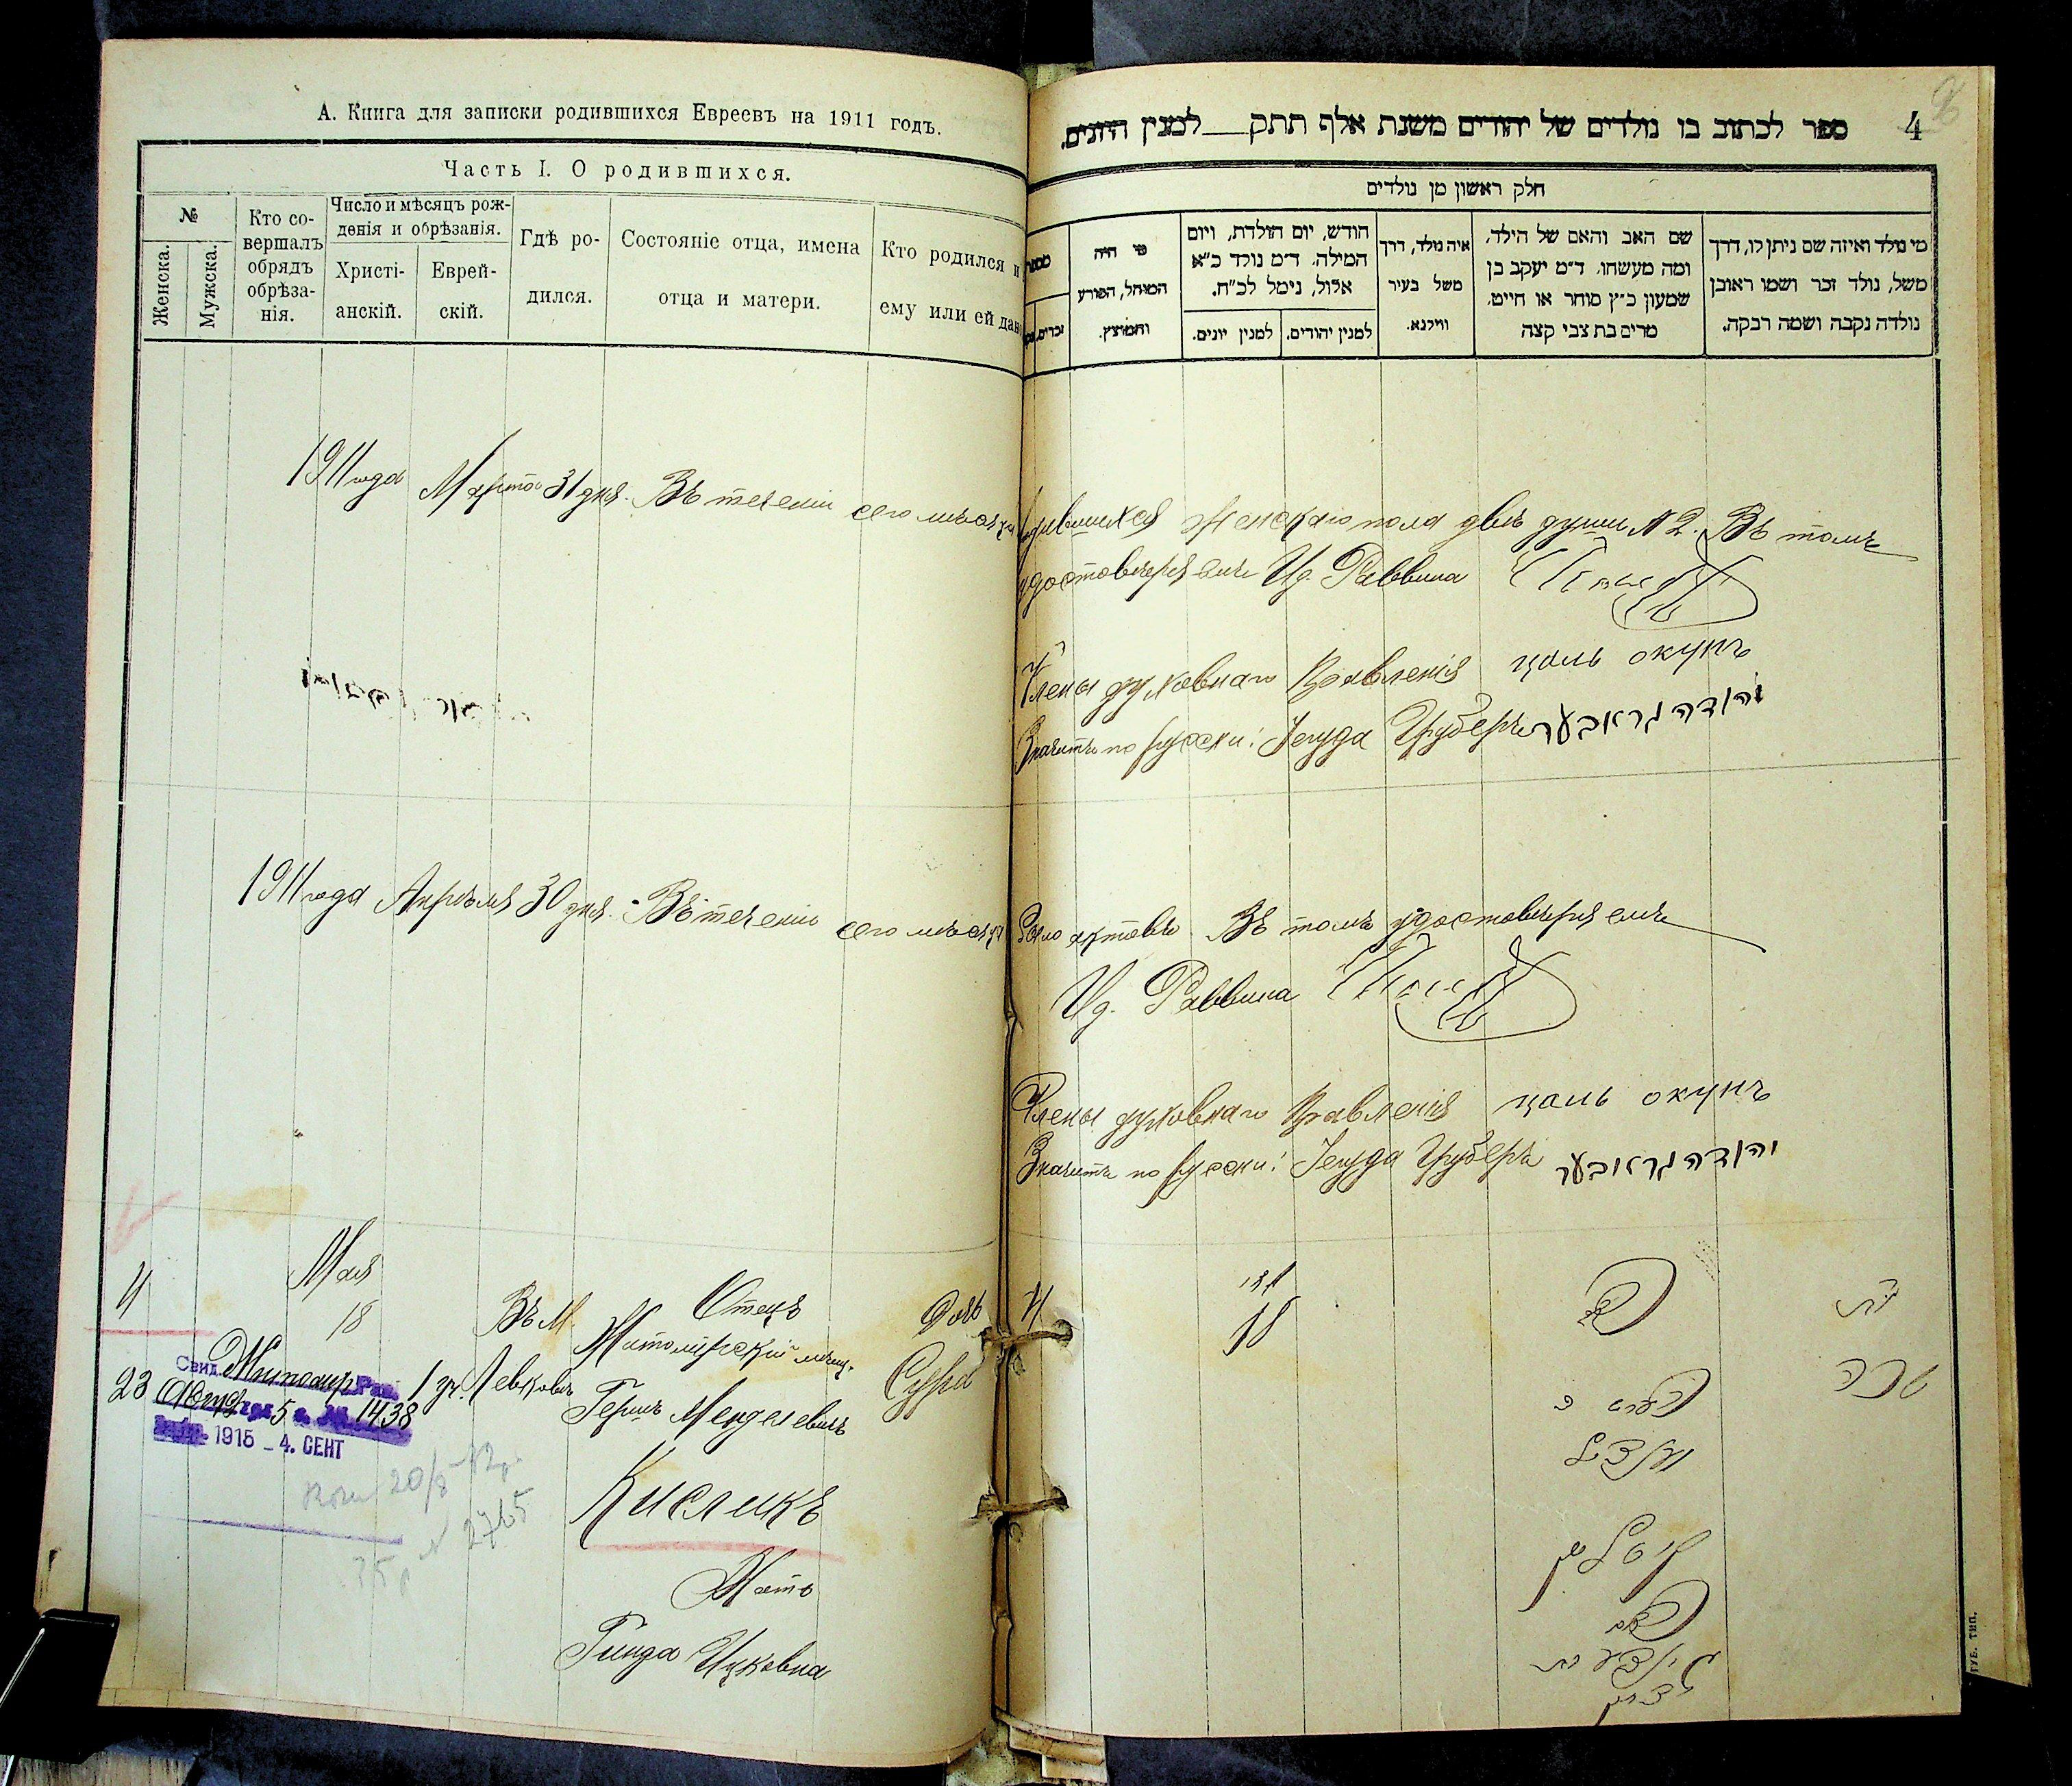 А. Книга для записки родившихся Евреевъ на 1911 годъ.
Часть I. О родившихся.
№
Женска.
Мужска.
Кто со-
вершалъ
обрядъ
обрѣза-
нія.
Число и мѣсяцъ рож-
денія и обрѣзанія.
Христі-
анскій.
Еврей-
скій.
Гдѣ ро-
дился.
Состояніе отца, имена
отца и матери.
Кто родился и
ему или ей дано
ספר לכתוב בו נולדים של יהודים משנת אלף תתק למנין היונים.
4
חלק ראשון מן נולדים
מי נולד ואיזה שם ניתן לו, דרך
משל, נולד זכר ושמו ראובן
נולדה נקבה ושמה רבקה.
שם האב והאם של הילד,
ומה מעשהו, ד״מ יעקב בן
שמעון כ״ץ סוחר או חייט,
מרים בת צבי קצה
איה נולד, דרך
משל בעיר
ווילנא.
חודש, יום הולדת, ויום
המילה, ד״מ נולד כ״א
אלול, נימל לכ״ח.
למנין יהודים.
למנין יונים.
מי היה
המוהל, הפורע
והמוצץ.
מספר
זכרים.
1911 года Марта 31 дня. Въ теченіи сего мѣсяца родившихся женскаго пола двѣ души № 2. Въ томъ
удостовѣряемъ И. д. Раввина
Члены духовнаго Правленія цаль окунь
Значитъ по русски: Іегуда Груберъ יהודה גראבער
1911 года Апрѣля 30 дня. Въ теченіи сего мѣсяца было актовъ. Въ томъ удостовѣряемъ
И. д. Раввина
Члены духовнаго Правленія цаль окунь
Значитъ по русски: Іегуда Груберъ יהודה גראבער
4
Мая
18
Въ М.
Левковъ
Отецъ
Житомірскій мѣщ.
Гершъ Менделевичъ
Кисликъ
Мать
Гинда Ицковна
Дочь
Сура
Свид. Житомир Рав. 1 уч.
23 Август 5 г. № 1438
1915 - 4. СЕНТ
20/8 12 г.
№ 2765
4
מאי
18
שרה
ГУБ. ТИП.